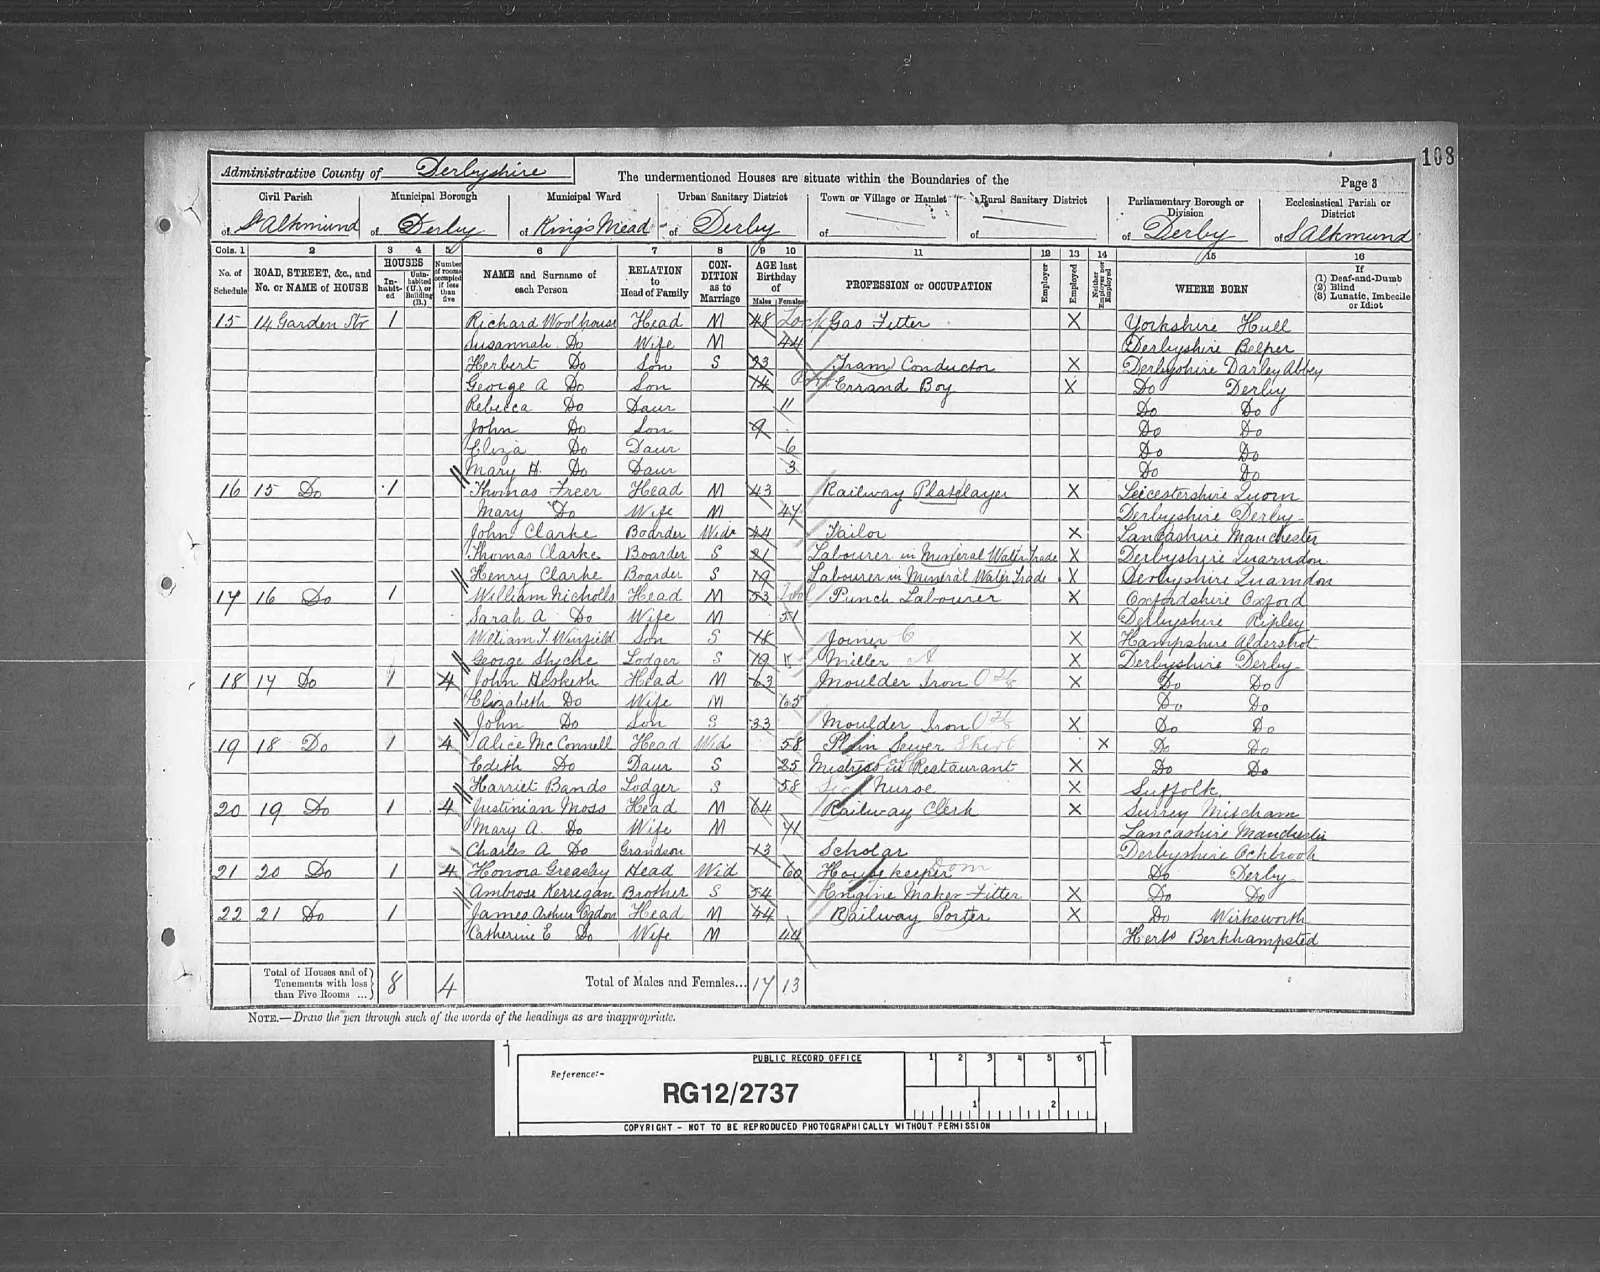 108
Administrative County of Derbyshire
The undermentioned Houses are situate within the Boundaries of the
Page 3
Civil Parish Municipal Borough Municipal Ward Urban Sanitary District Town or Village or Hamlet Rural Sanitary District Parliamentary Borough or Division Ecclesiastical Parish or District
of St Alkmund of Derby of King's Mead of Derby of of of Derby of St Alkmund
Cols. 1 2 3 4 5 6 7 8 9 10 11 12 13 14 15 16
No. of Schedule ROAD, STREET, &c., and No. or NAME of HOUSE HOUSES In-habit-ed Unin-habited (U.), or Building (B.) Number of rooms occupied if less than five NAME and Surname of each Person RELATION to Head of Family CON-DITION as to Marriage AGE last Birthday of Males Females PROFESSION or OCCUPATION Employer Employed Neither Employer nor Employed WHERE BORN If (1) Deaf-and-Dumb (2) Blind (3) Lunatic, Imbecile or Idiot
15 14 Garden Str 1 Richard Woolhouse Head M 48 Gas Fitter X Yorkshire Hull
Susannah Do Wife M 44 Derbyshire Belper
Herbert Do Son S 23 Tram Conductor X Derbyshire Darley Abbey
George A Do Son 14 Errand Boy X Do Derby
Rebecca Do Daur 11 Do Do
John Do Son 9 Do Do
Eliza Do Daur 6 Do Do
Mary H. Do Daur 3 Do Do
16 15 Do 1 Thomas Freer Head M 43 Railway Platelayer X Leicestershire Quorn
Mary Do Wife M 47 Derbyshire Derby
John Clarke Boarder Widr 44 Tailor X Lancashire Manchester
Thomas Clarke Boarder S 21 Labourer in Mineral Water Trade X Derbyshire Quarndon
Henry Clarke Boarder S 19 Labourer in Mineral Water Trade X Derbyshire Quarndon
17 16 Do 1 William Nicholls Head M 53 Punch Labourer X Oxfordshire Oxford
Sarah A Do Wife M 51 Derbyshire Ripley
William T. Winfield Son S 18 Joiner C X Hampshire Aldershot
George Styche Lodger S 19 Miller A X Derbyshire Derby
18 17 Do 1 4 John Heskish Head M 63 Moulder Iron X Do Do
Elizabeth Do Wife M 65 Do Do
John Do Son S 33 Moulder Iron X Do Do
19 18 Do 1 4 Alice McConnell Head Wid 58 Plain Sewer Shirt X Do Do
Edith Do Daur S 25 Mistress in Restaurant X Do Do
Harriet Bands Lodger S 58 Nurse X Suffolk
20 19 Do 1 4 Justinian Moss Head M 64 Railway Clerk X Surrey Mitcham
Mary A. Do Wife M 71 Lancashire Manchester
Charles A Do Grandson 13 Scholar Derbyshire Ockbrook
21 20 Do 1 4 Honora Greasby Head Wid 60 Housekeeper Dom Do Derby
Ambrose Kerrigan Brother S 54 Engine Maker Fitter X Do Do
22 21 Do 1 James Arthur Ogdon Head M 44 Railway Porter X Do Wirksworth
Catherine E Do Wife M 44 Herts Berkhampsted
Total of Houses and of Tenements with less than Five Rooms ... 8 4 Total of Males and Females... 17 13
NOTE.—Draw the pen through such of the words of the headings as are inappropriate.
PUBLIC RECORD OFFICE
1 2 3 4 5 6
Reference:-
RG12/2737
1 2
COPYRIGHT - NOT TO BE REPRODUCED PHOTOGRAPHICALLY WITHOUT PERMISSION